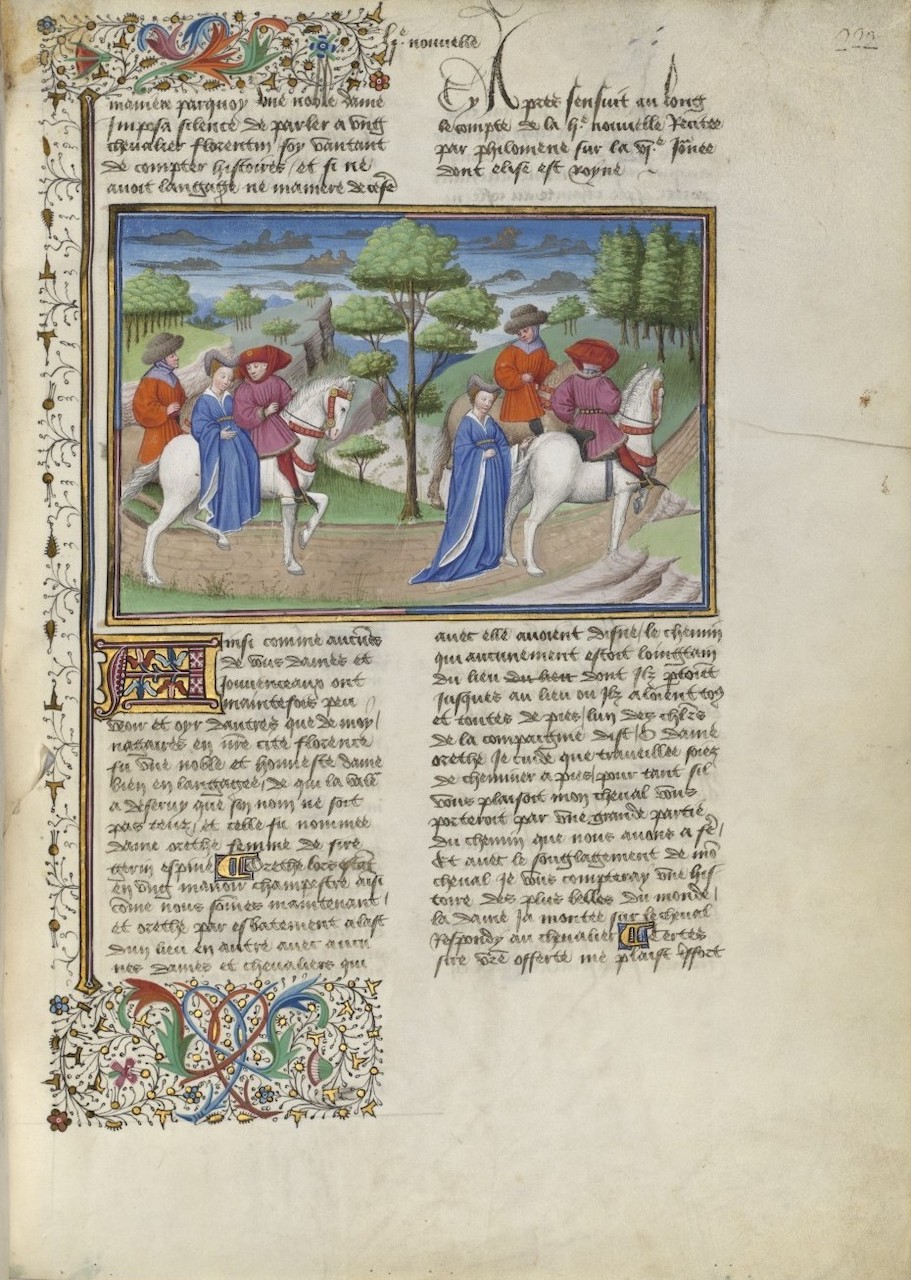 lje nouvelle
222
maniere parquoy une noble dame
Imposa silence de parler a ung
chevalier florentin soy vantant
de compter histoires / et si ne
avoit langaige ne maniere de ce fe
Cy Apres sensuit au long
le compte de la lje nouvelle Recitee
par philomene sur la vje Jornee
dont elise est royne
Ainsi comme aucunes
de vous dames et
Jouvenceaux ont
maintesfois peu
veoir et oyr dautres que de moy /
nagaires en nre cite florence
fu une noble et honneste dame
bien en langagee / de qui la vale
a deservy que son nom ne soit
pas teuz / et celle fu nommee
dame orethe femme de sire
gerin espine Orethe lors estat
en ung manoir champestre ainsi
come nous somes maintenant /
et orethe par esbatement alast
dun lieu en autre avec aucu
nes dames et chevaliers qui
avec elle avoient disne / le chemin
qui aucunement estoit loingtain
du lieu du lieu dont Ilz partoiet
Jusques au lieu ou Ilz aloient toz
et toutes de pies / lun des chlrs
de la compaignie dist / O dame
orethe Je cuide que traveillee soiez
de cheminer a pies / pour tant sil
vous plaisoit mon cheval vous
porteroit par une grande partie
du chemin que nous avons a fe /
Et avec le songlagement de mo
cheval Je vous compteray une his
toire des plus belles du monde /
la dame Ja montee sur le cheval
Respondy au chevalier Certes
sire vre offerte me plaist effort